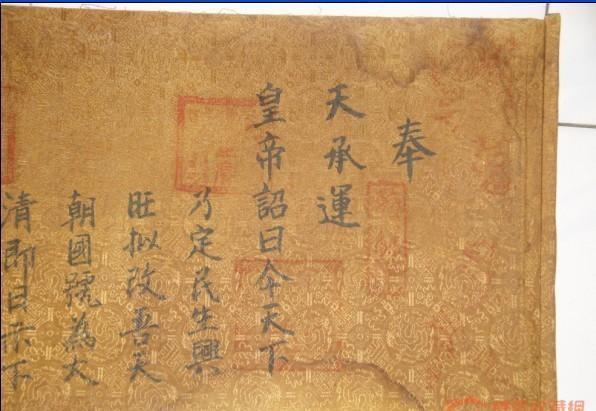 奉
天承運
皇帝詔曰今天下
乃定民生興
旺拟改吾天
朝國號為大
清即日示下